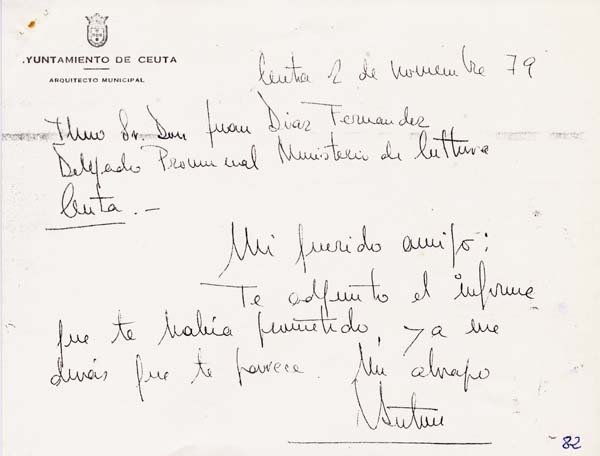 AYUNTAMIENTO DE CEUTA
ARQUITECTO MUNICIPAL
Ceuta 2 de noviembre 79
Ilmo Sr. Don Juan Diaz Fernandez
Delegado Provincial Ministerio de Cultura
Ceuta.-
Mi querido amigo:
Te adjunto el informe
que te había prometido, ya me
dirás que te parece. Un abrazo
82